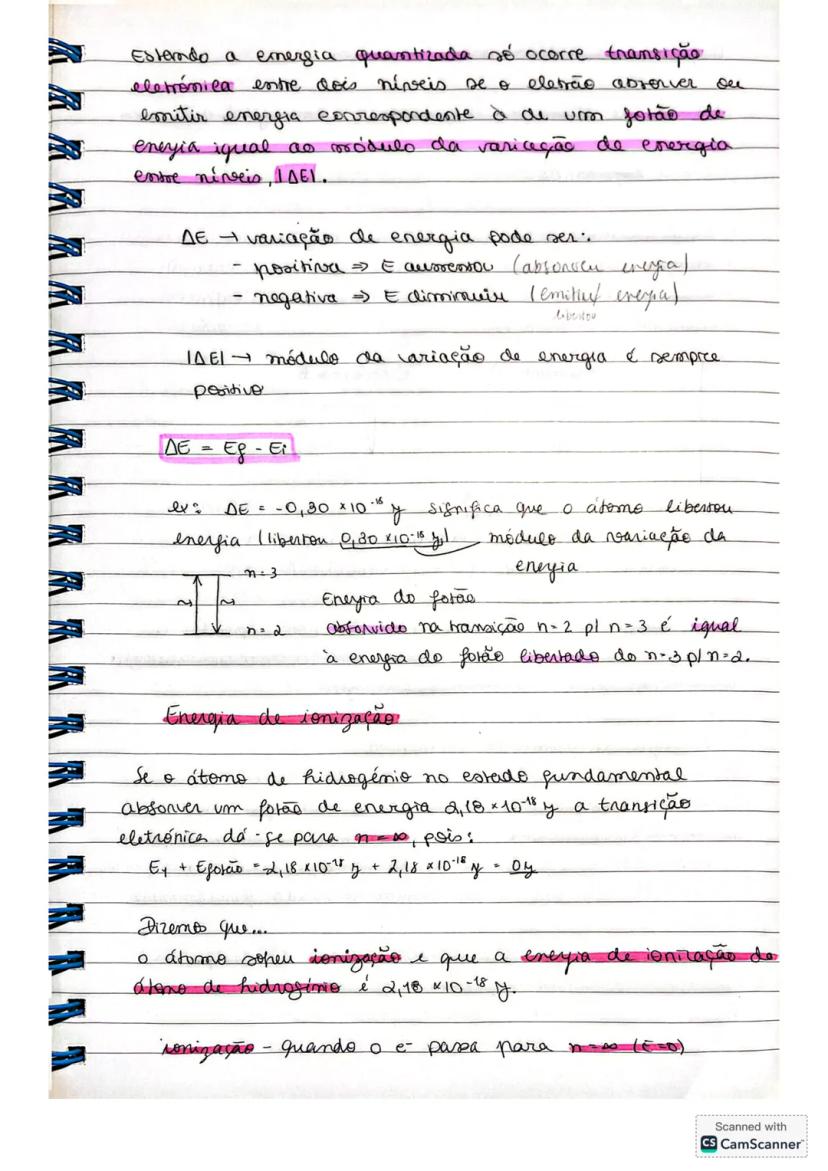 Estando a energia quantizada só ocorre transição
eletrónica entre dois níveis se o eletrão absorver ou
emitir energia correspondente à de um fotão de
energia igual ao módulo da variação de energia
entre níveis, |ΔE|.
ΔE → variação de energia pode ser:
- positiva ⇒ E aumentou (absorveu energia)
- negativa ⇒ E diminuiu (emitiu/ energia)
libertou
|ΔE| → módulo da variação de energia é sempre
positivo
ΔE = Ef - Ei
ex: ΔE = -0,30 × 10⁻¹⁸ J significa que o átomo libertou
energia (libertou 0,30 × 10⁻¹⁸ J) módulo da variação da
energia
n=3
Energia do fotão
n=2 absorvido na transição n=2 p/ n=3 é igual
à energia do fotão libertado do n=3 p/ n=2.
Energia de ionização
Se o átomo de hidrogénio no estado fundamental
absorver um fotão de energia 2,18 × 10⁻¹⁸ J a transição
eletrónica dá-se para n=∞, pois:
E₁ + Efotão = -2,18 × 10⁻¹⁸ J + 2,18 × 10⁻¹⁸ J = 0J
Dizemos que...
o átomo sofreu ionização e que a energia de ionização do
átomo de hidrogénio é 2,18 × 10⁻¹⁸ J.
ionização - quando o e- passa para n=∞ (E=0)
Scanned with
CS CamScanner